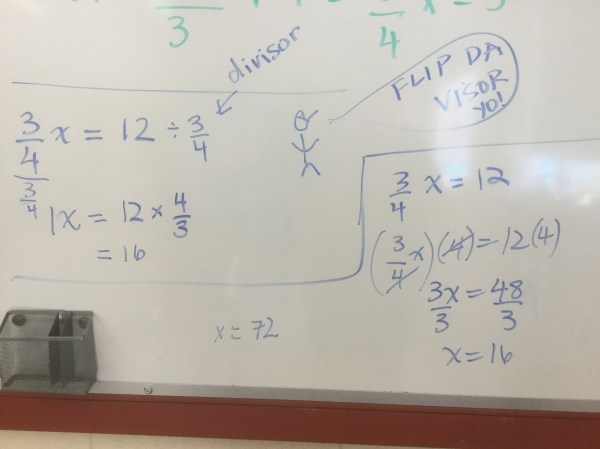 3
3/4 x = 5
divisor
FLIP DA
VISOR
YO!
3/4 x = 12 ÷ 3/4
3/4
1x = 12 × 4/3
= 16
3/4 x = 12
(3/4 x)(4) = 12(4)
3x/3 = 48/3
x = 16
x = 72